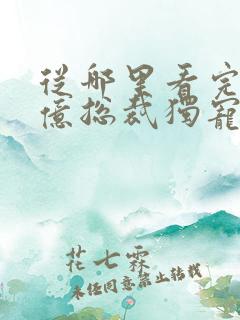 從哪里看完
億總裁獨寵
花七霖
未經同意禁止轉載